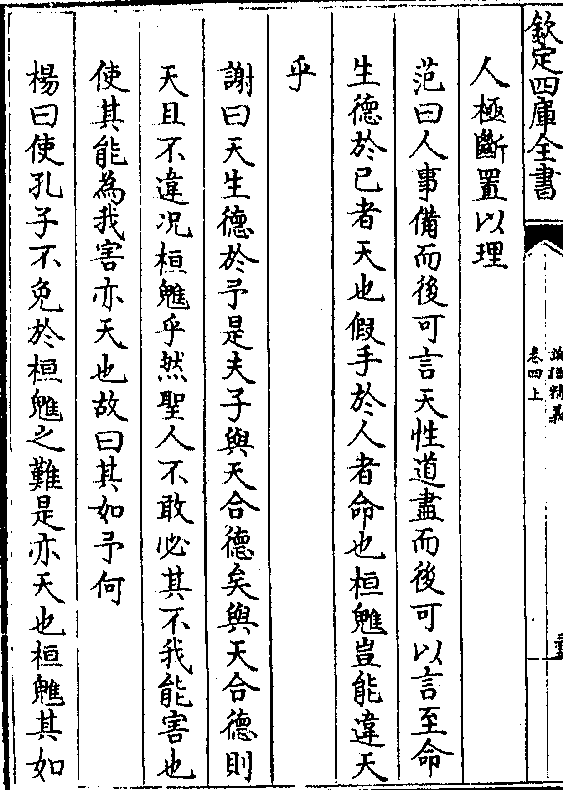 欽定四庫全書
論孟精義
卷四上
人極斷置以理
范曰人事備而後可言天性道盡而後可以言至命
生德於已者天也假手於人者命也桓魋豈能違天
乎
謝曰天生德於予是夫子與天合德矣與天合德則
天且不違况桓魋乎然聖人不敢必其不我能害也
使其能為我害亦天也故曰其如予何
楊曰使孔子不免於桓魋之難是亦天也桓魋其如